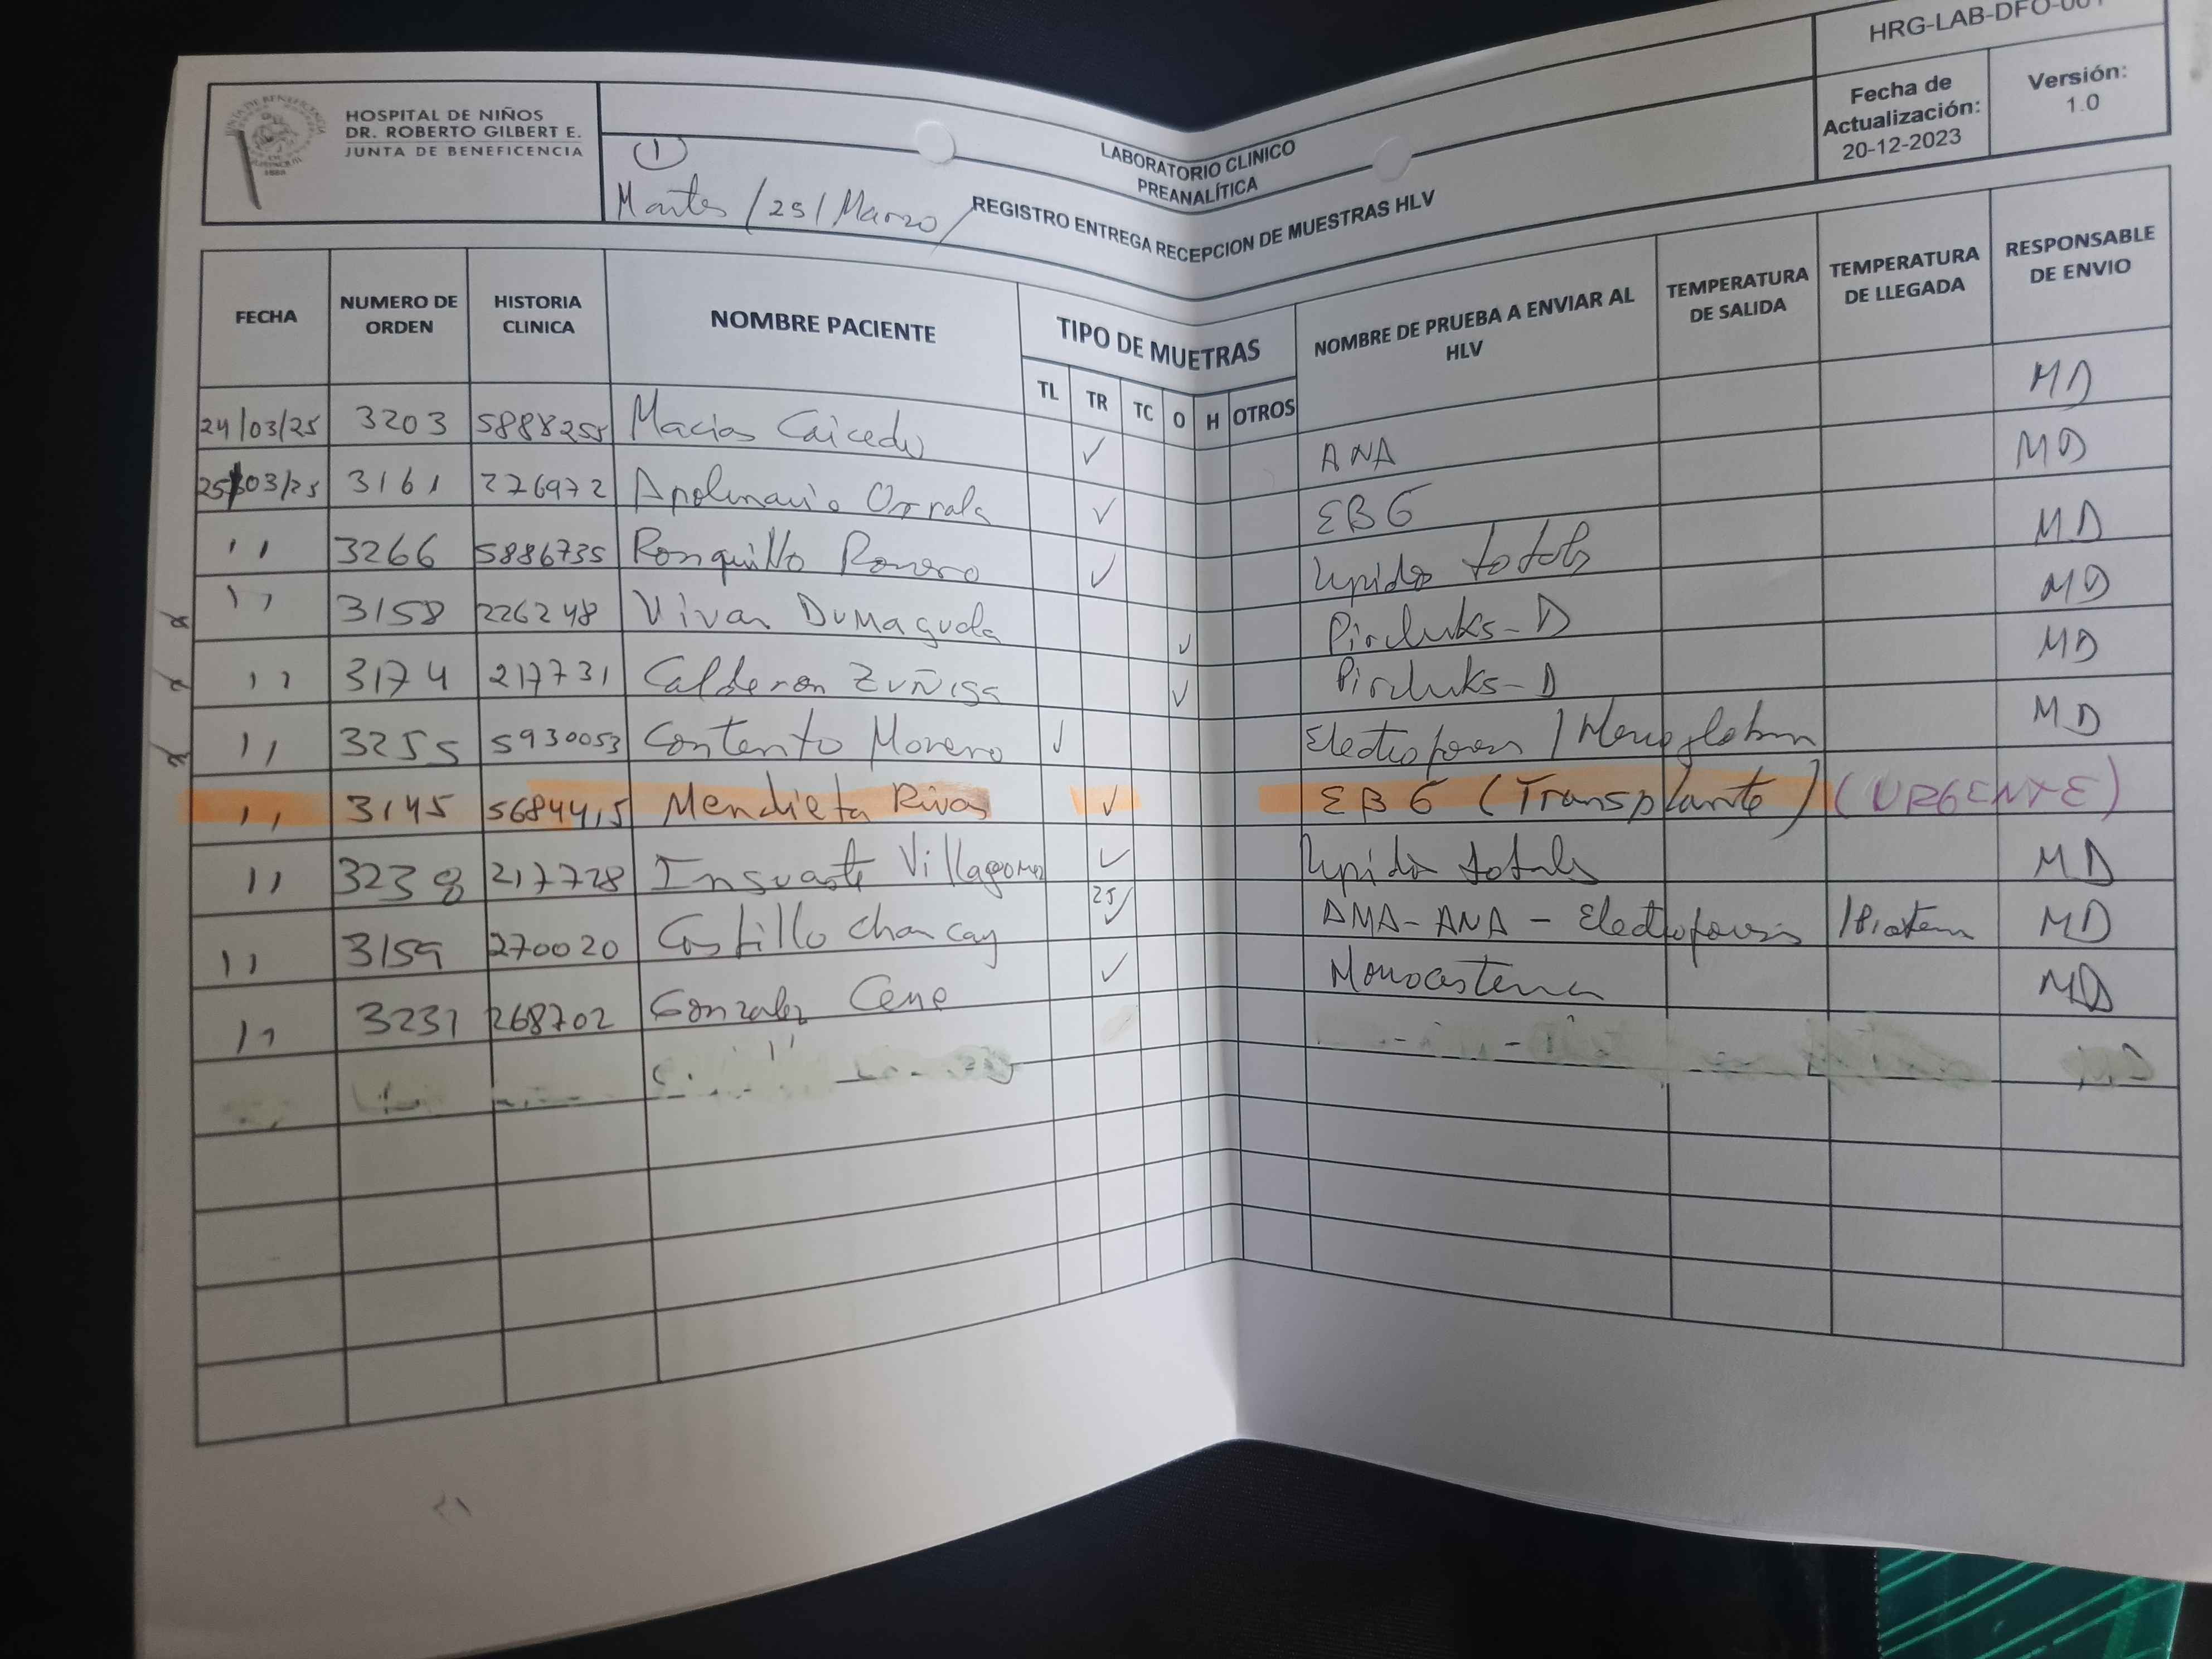 HRG-LAB-DFO-001
HOSPITAL DE NIÑOS
DR. ROBERTO GILBERT E.
JUNTA DE BENEFICENCIA
LABORATORIO CLINICO
PREANALÍTICA
Fecha de Actualización: 20-12-2023
Versión: 1.0
(1)
Martes /25/Marzo/
REGISTRO ENTREGA RECEPCION DE MUESTRAS HLV
FECHA NUMERO DE ORDEN HISTORIA CLINICA NOMBRE PACIENTE TIPO DE MUETRAS NOMBRE DE PRUEBA A ENVIAR AL HLV TEMPERATURA DE SALIDA TEMPERATURA DE LLEGADA RESPONSABLE DE ENVIO
TL TR TC O H OTROS
24/03/25 3203 5888255 Macias Caicedo ✓ ANA MD
25/03/25 3161 226972 Apolinario Orrala ✓ EBG MD
'' 3266 5886735 Ronquillo Romero ✓ Lipidos totales MD
'' 3158 226248 Vivar Dumaguala ✓ MD
'' 3174 217731 Calderon Zuñiga ✓ MD
'' 3255 5930053 Contento Moreno ✓ Electroforesis / Hemoglobina MD
'' 3145 5684415 Mendieta Rivas ✓ EBG (Transplante) (URGENTE)
'' 3238 217728 Insuaste Villagomez ✓ Lipidos totales MD
'' 3159 270020 Castillo Chancay 25/ ✓ AMA-ANA - Electroforesis /Protein MD
'' 3231 268702 Gonzalez Cene ✓ MD